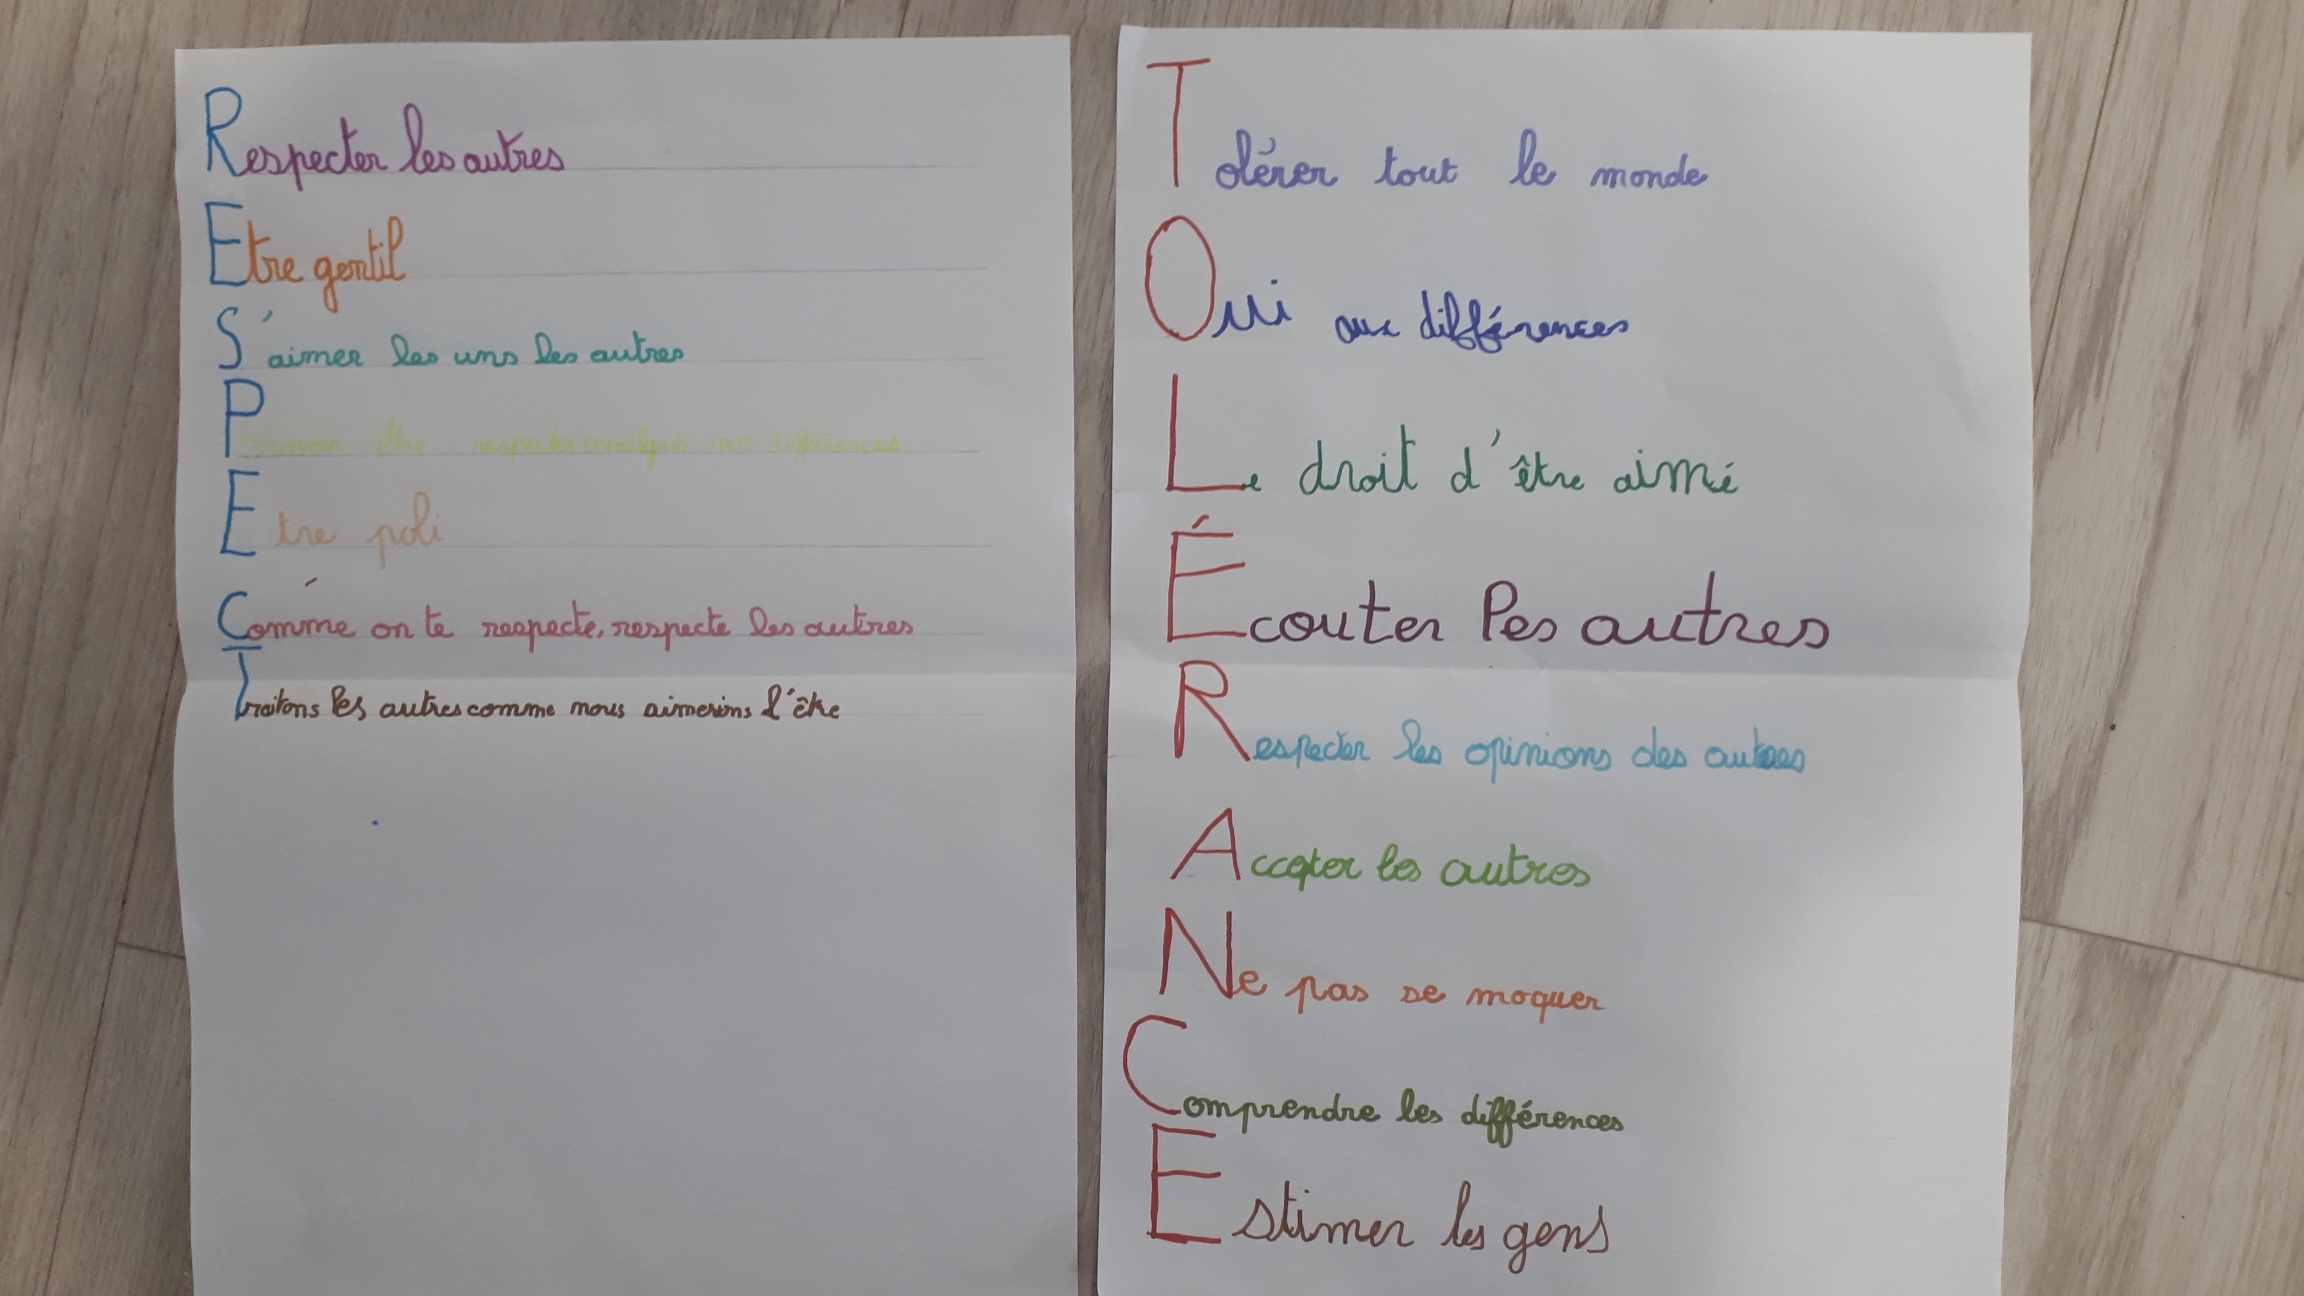 Respecter les autres
Etre gentil
S'aimer les uns les autres
P être respecter malgré nos différences
Etre poli
Comme on te respecte, respecte les autres
Traitons les autres comme nous aimerions l'être
Tolérer tout le monde
Oui aux différences
Le droit d'être aimé
Écouter les autres
Respecter les opinions des autres
Accepter les autres
Ne pas se moquer
Comprendre les différences
Estimer les gens